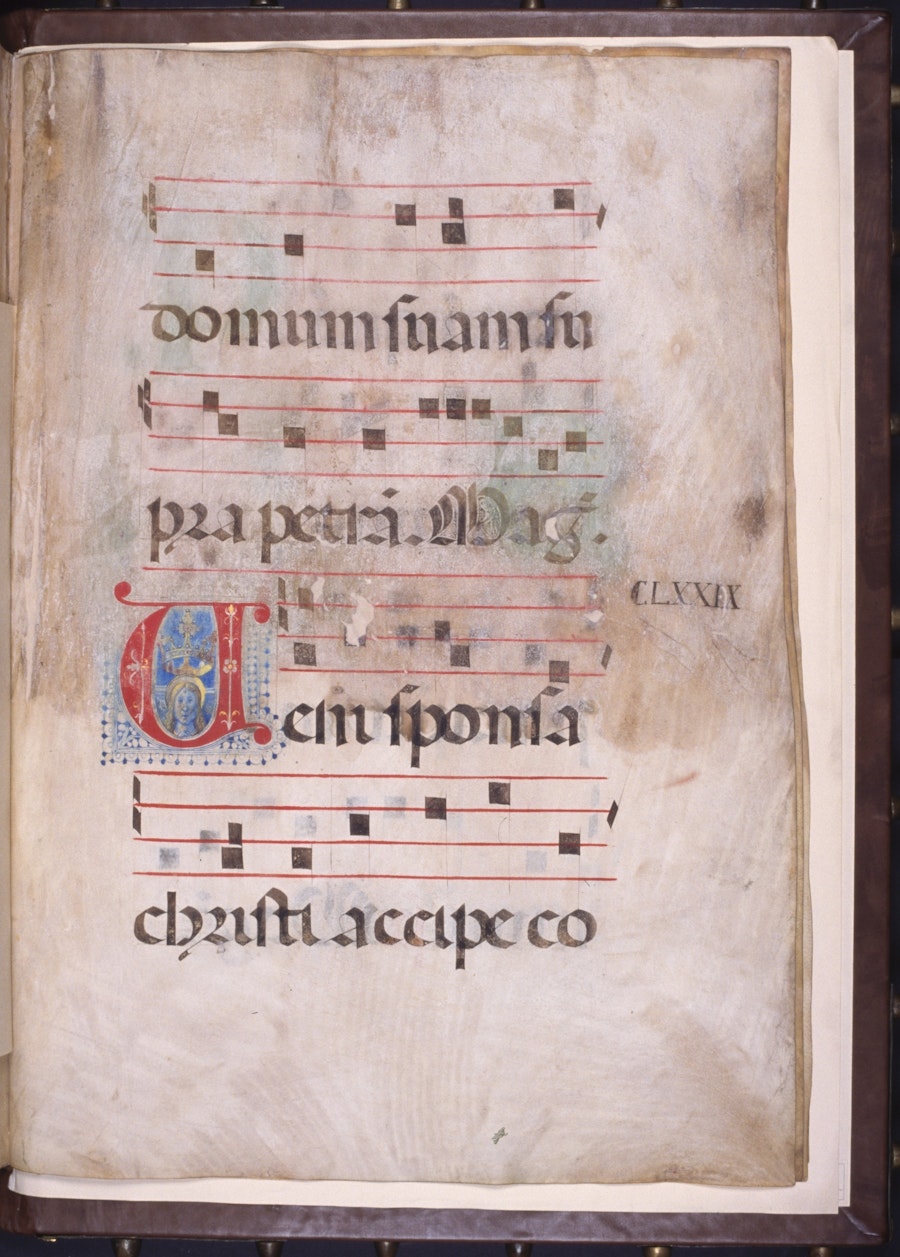 domum suam su
pra petrā. Mag̃.
CLXXIX
Veni sponsa
christi accipe co